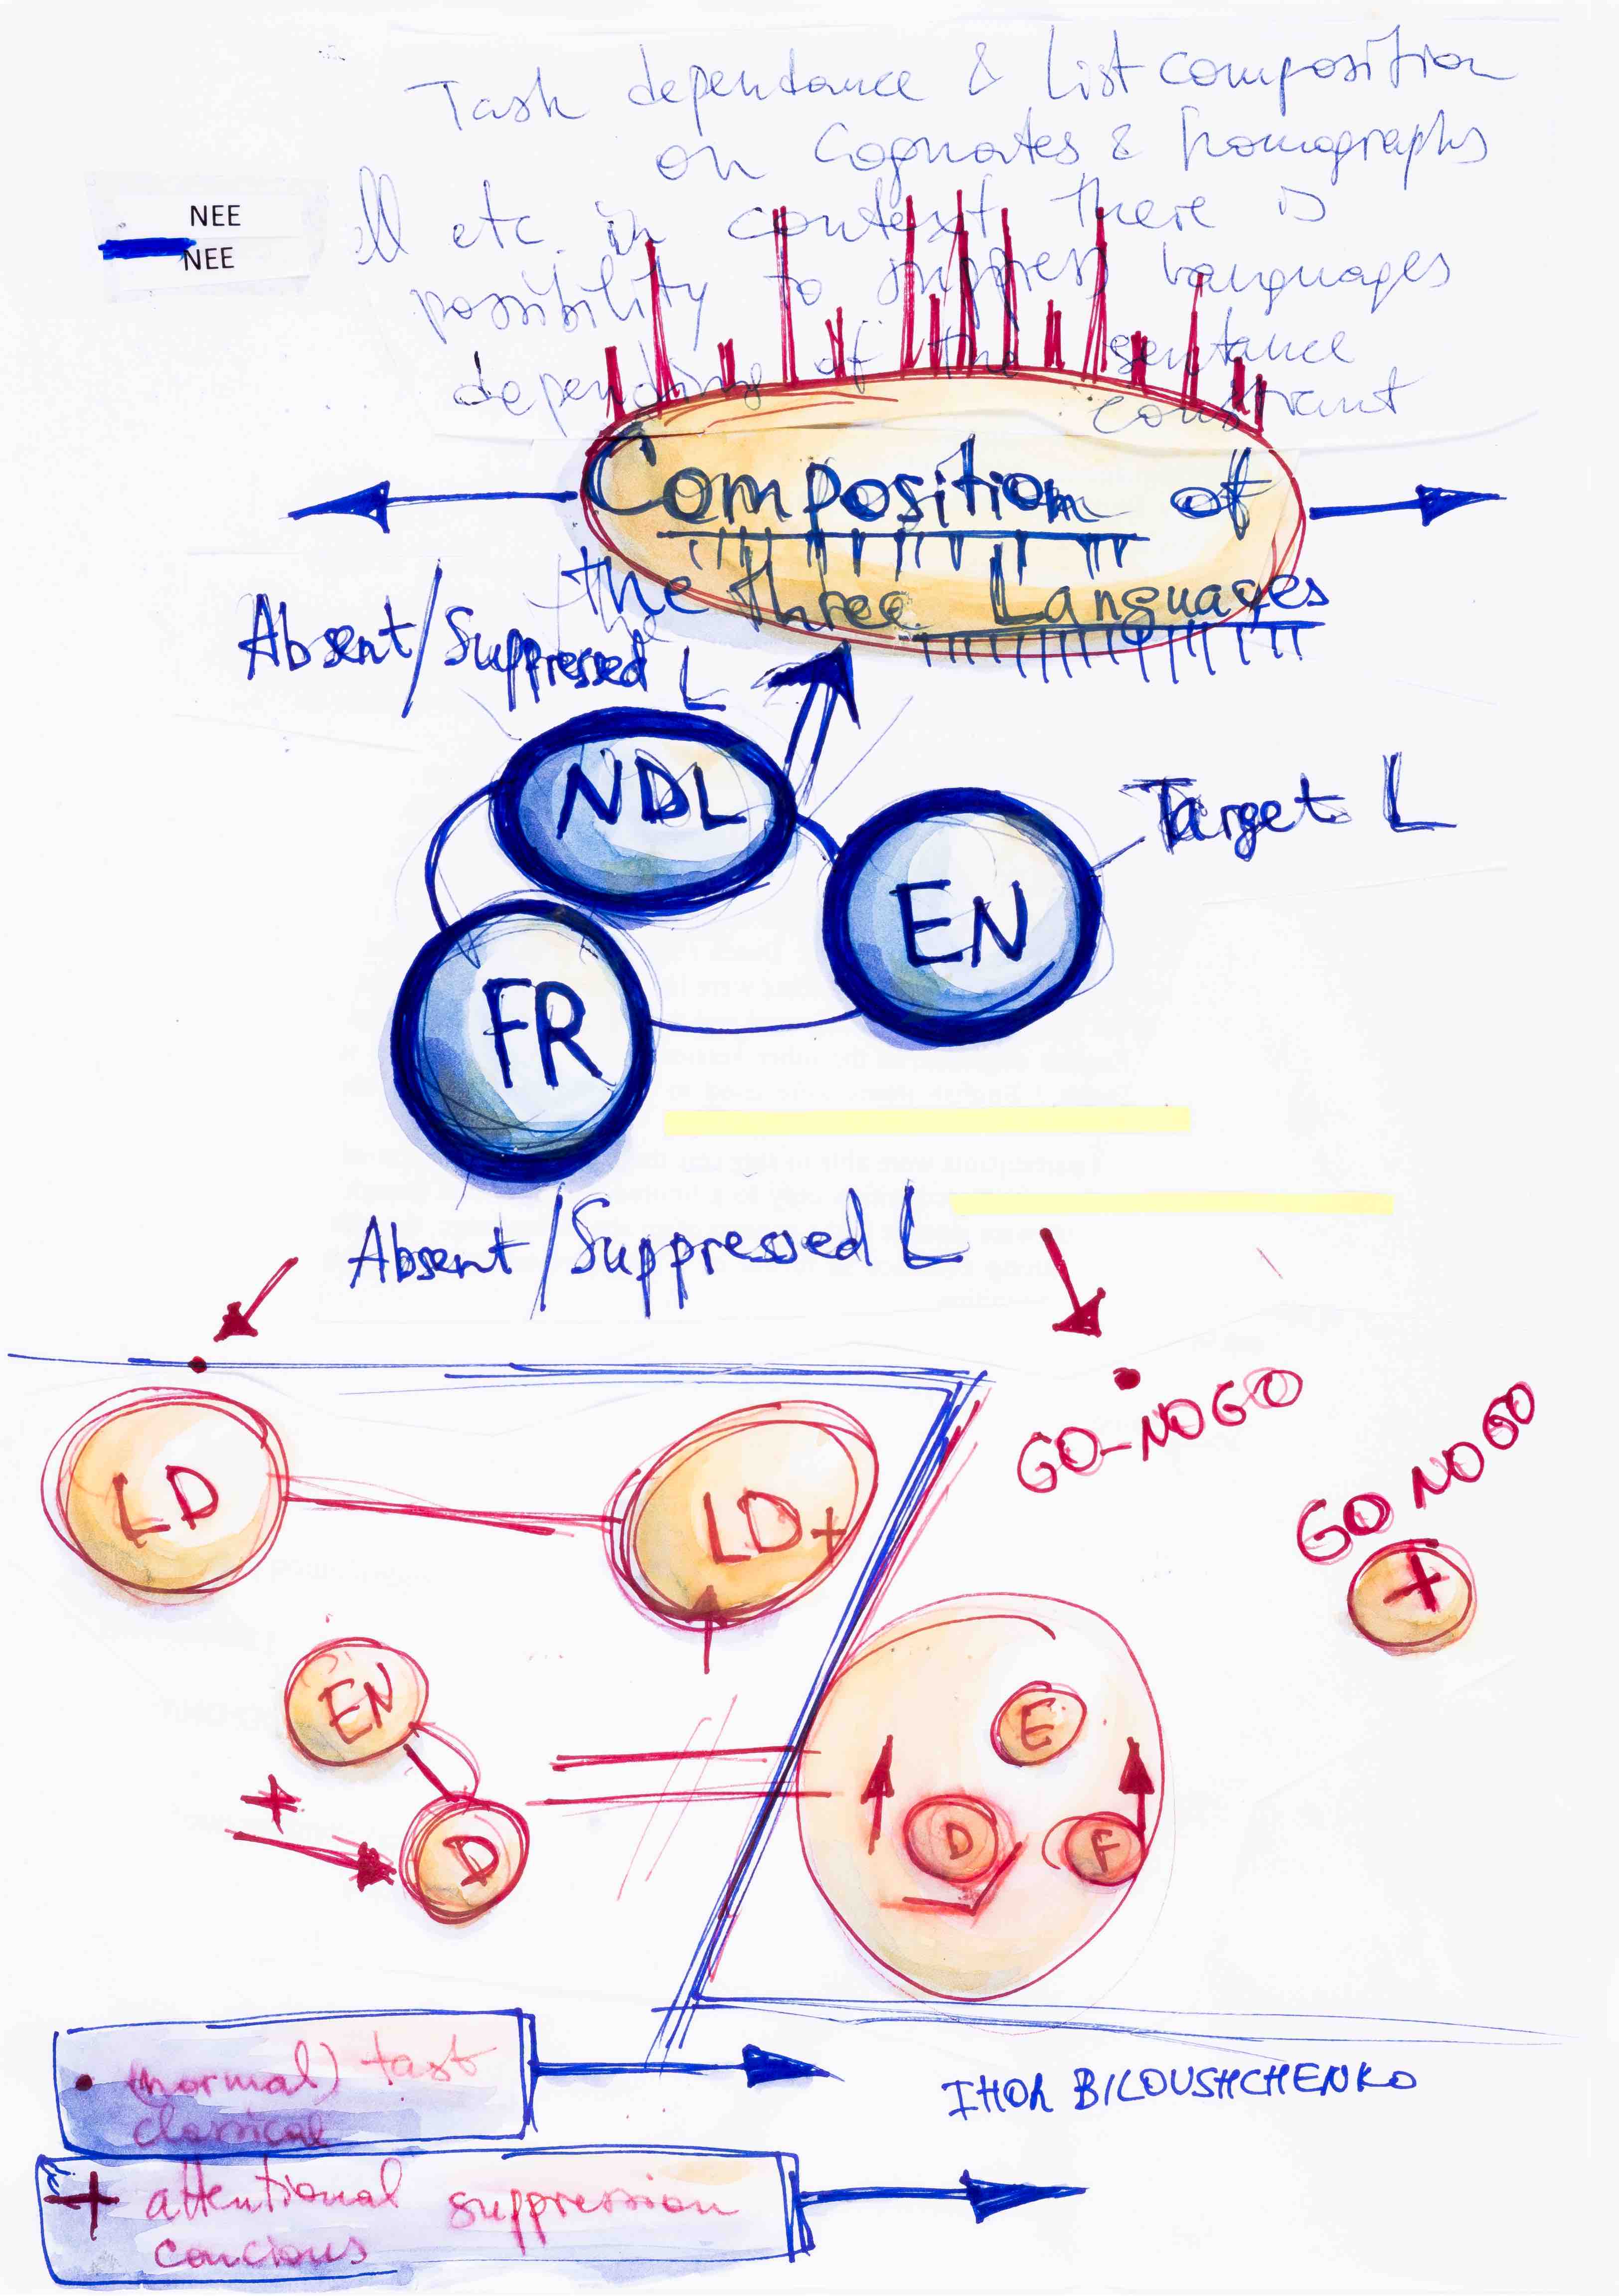 Task dependance & List composition
on Cognates & homographs
ell etc. in context there is
possibility to suppress languages
depending of the sentance
constrant
NEE
NEE
Composition of
the three Languages
Absent/Suppressed L
NDL
EN
Target L
FR
Absent/Suppressed L
GO-NOGO
GO NOGO
+
LD
LD+
EN
+
D
E
D
F
• (normal) task
classical
IHOR BILOUSHCHENKO
+ attentional suppression
concious